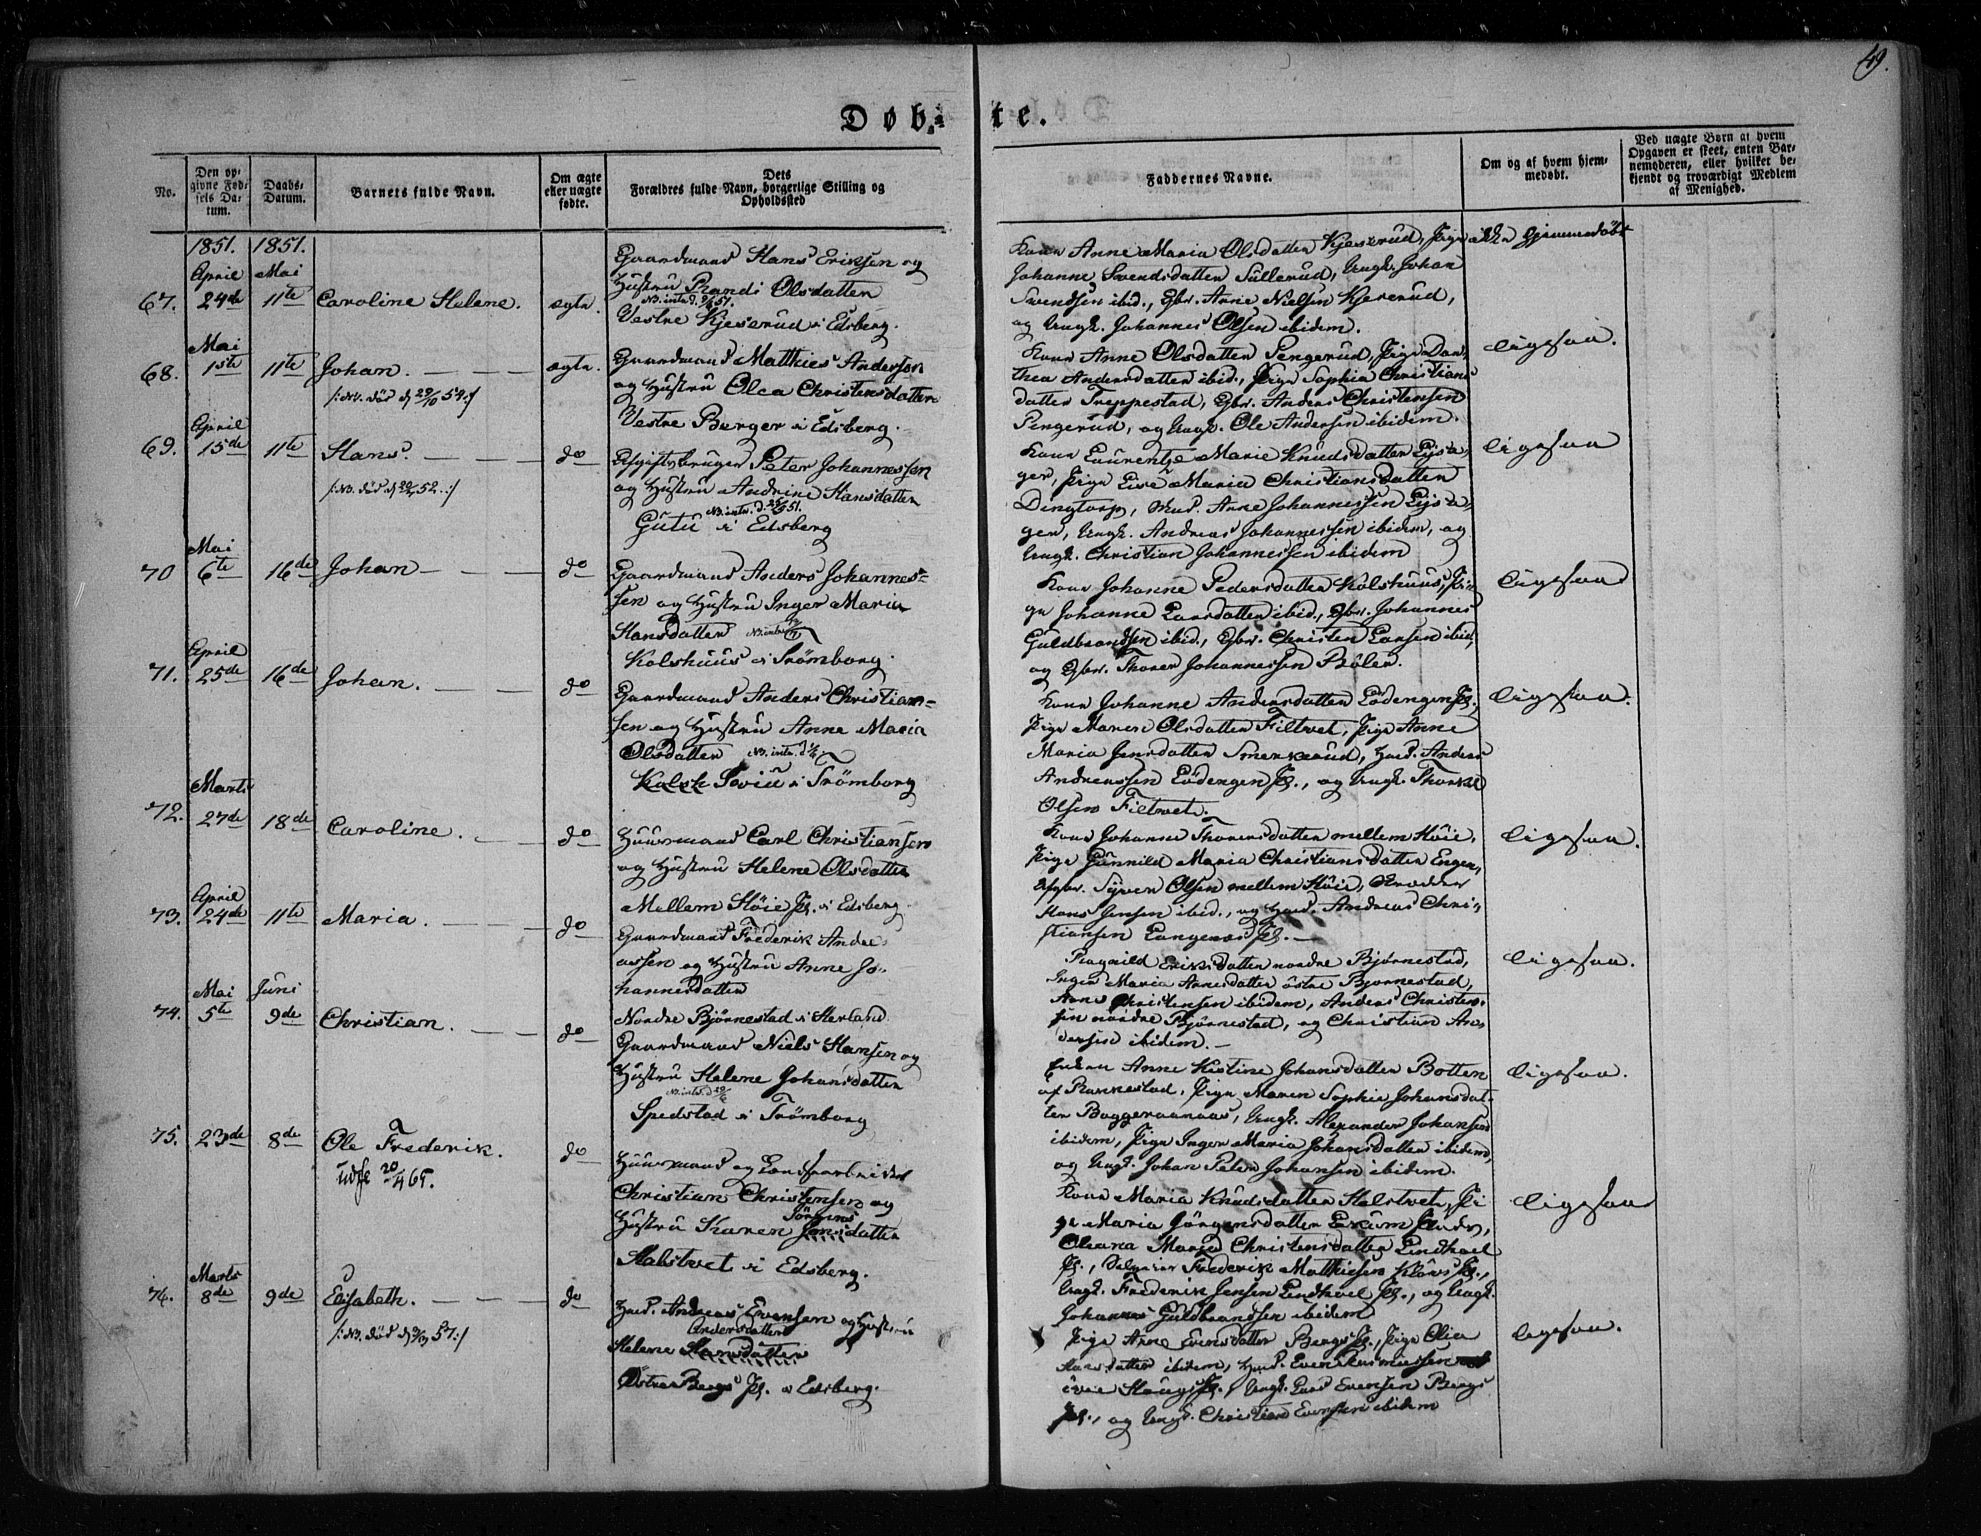 49.
Døbte.
No.
Den opgivne Fødsels Datum.
Daabs-Datum.
Barnets fulde Navn.
Om ægte eller uægte fødte.
Dets Forældres fulde Navn, borgerlige Stilling og Opholdssted
Faddernes Navne.
Om og af hvem hjemmedøbt.
Ved uægte Børn at hvem Opgaven er skeet, enten Barnemoderen, eller hvilket bekjendt og troværdigt Medlem af Menighed.
1851. 1851.
April Mai
67. 24de 11te Caroline Helene. ægte.
Gaardmand Hans Eriksen og
Hustru Randi Olsdatter
Vestre Kjeserud i Edsberg.
Kone Anne Maria Olsdatter Kjeserud, Pige
Johanne Svendsdatter Sullerud, Ungk. Johan
Svendsen ibid., Gbr. Arne Nielsen Kjeserud,
og Ungk. Johannes Olsen ibidem.
ikke hjemmedøbt
Mai
68. 1ste 11te Johan. ægte.
/: NB. død d 29/10 54 :/
Gaardmand Matthies Andersen
og Hustru Olea Christensdatter
Vestre Berger i Edsberg.
Kone Anne Olsdatter Pengerud, Pige Dor-
thea Andersdatter ibid., Pige Sophia Christians
datter Treppestad, Gbr. Anders Christensen
Pengerud, og Ungk. Ole Andersen ibidem.
ligesaa.
April
69. 15de 11te Hans. do
Afgiftsbruger Peter Johannessen
og Hustru Andrine Hansdatter
Gutu i Edsberg
Kone Laurentze Marie Knudsdatter
ger, Pige Live Maria Christiansdatter
Dingtorp, Arne Johannessen
gen, Ungk. Andreas Johannessen ibidem, og
Ungk. Christian Johannessen ibidem
ligesaa
Mai
70 6te 16de Johan do
Gaardmand Anders Johannes-
sen og Hustru Inger Maria
Hansdatter
Kolshuus i Trømborg.
Kone Johanne Pedersdatter Kolshuus, Pi-
ge Johanne Larsdatter ibid., Gbr. Johannes
Guldbrandsen ibid., Gbr. Christen Larsen ibid,
og Gbr. Thorer Johannessen Bøler.
ligesaa
April
71. 25de 16de Johan. do
Gaardmand Anders Christian-
sen og Hustru Anne Maria
Olsdatter
i Trømborg
Kone Johanne Andersdatter Lødengen
Pige Maren Olsdatter Filtvet, Pige Anne
Maria Jensdatter Smerkerud, Huusm. Anders
Andreassen Lødengen
Olsen Filtvet.
ligesaa.
Marts
72. 27de 18de Caroline. do
Huusmand Carl Christiansen
og Hustru Helene Olsdatter
Mellem Høie i Edsberg.
Kone Johanne Thorersdatter mellem Høie,
Pige Gunnild Maria Christiansdatter Engen,
Syver Olsen mellem Høie,
Hans Jensen ibid., og Andreas Chri-
stiansen
ligesaa.
April
73. 24de 11te Maria. do
Gaardmand Frederik Andre-
assen og Hustru Anne Jo-
hannesdatter
Nordre Bjørnestad i Herland.
Ragnild Eriksdatter nordre Bjørnestad,
Inger Maria Arnesdatter østre Bjørnestad,
Arne Christensen ibidem, Anders Christen-
sen nordre Bjørnestad, og Christian An-
dersen ibidem.
ligesaa.
Mai Juni
74. 5te 9de Christian. do
Gaardmand Niels Hansen og
Hustru Helene Johansdatter
Spedstad i Trømborg
Enken Anne Kistine Johansdatter Botten
af Rakkestad, Pige Maren Sophie Johansdat-
ter Ungk. Alexander Johansen
ibidem, Pige Inger Maria Johansdatter ibidem,
og Ungk. Johan Peter Johansen ibidem.
ligesaa.
75. 23de 8de Ole Frederik. do
20/4 65.
Huusmand og
Christian Christensen og
Jörgens
Hustru Karen Jensdatter
Halstvet i Edsberg.
Kone Maria Knudsdatter Halstvet, Pi-
ge Maria Jörgensdatter
Oleana Maria Christensdatter Lindhoel
Frederik Matthiesen
Ungk. Frederik Jensen Lindhoel og Ungk.
Johannes Guldbrandsen ibidem
ligesaa
Marts
76. 8de 9de Elisabeth. do
Andreas Evensen og Hustru
Andersdatter
Helene Hansdatter
Østre Bergs i Edsberg.
Pige Anne Evensdatter Bergs Pige Olia
datter ibidem, Even Rasmussen
Ungk. Lars Evensen Bergs
og Ungk. Christian Evensen ibidem
ligesaa.